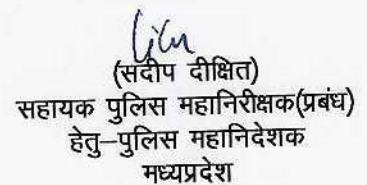 (सदीप दीक्षित)
सहायक पुलिस महानिरीक्षक(प्रबंध)
हेतु–पुलिस महानिदेशक
मध्यप्रदेश